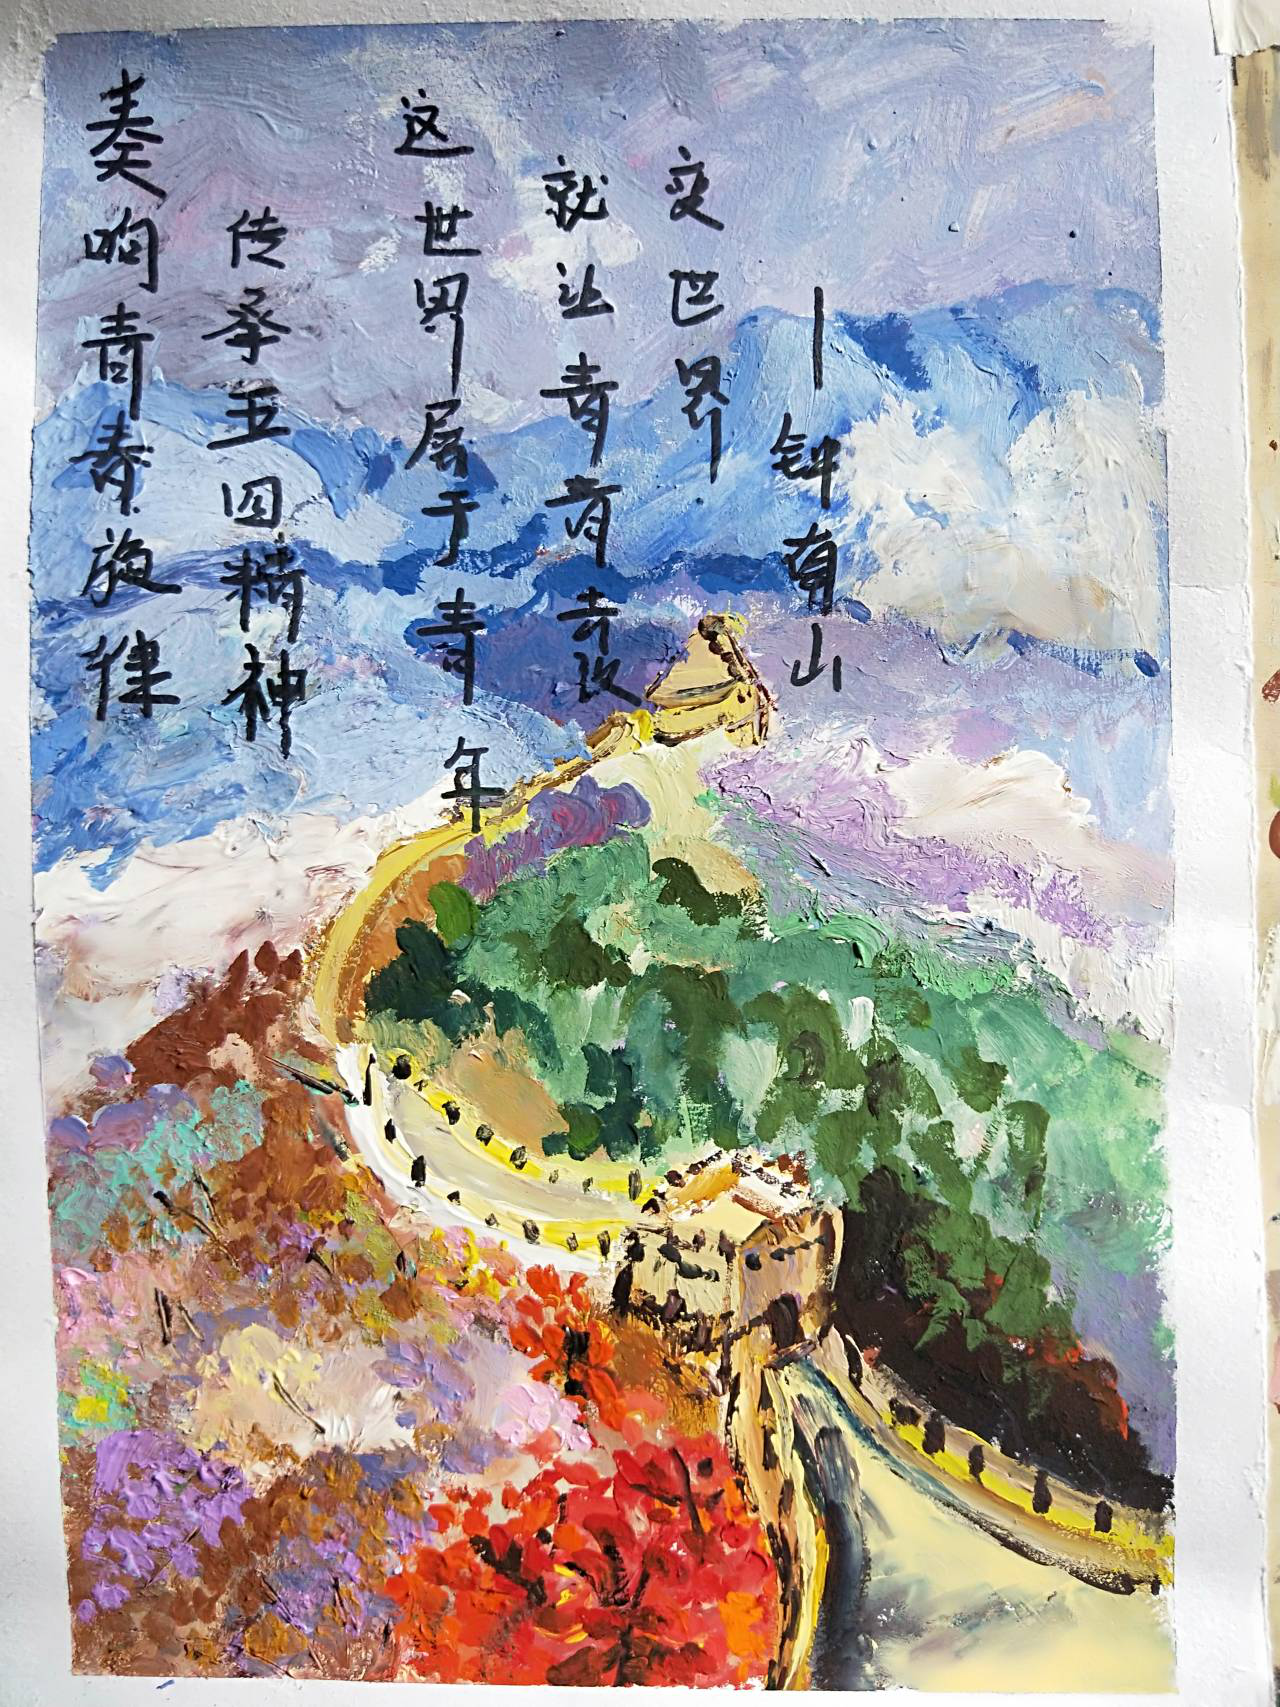 奏响青春旋律
传承五四精神
这世界属于青年
就让青春去改
变世界
—钟南山